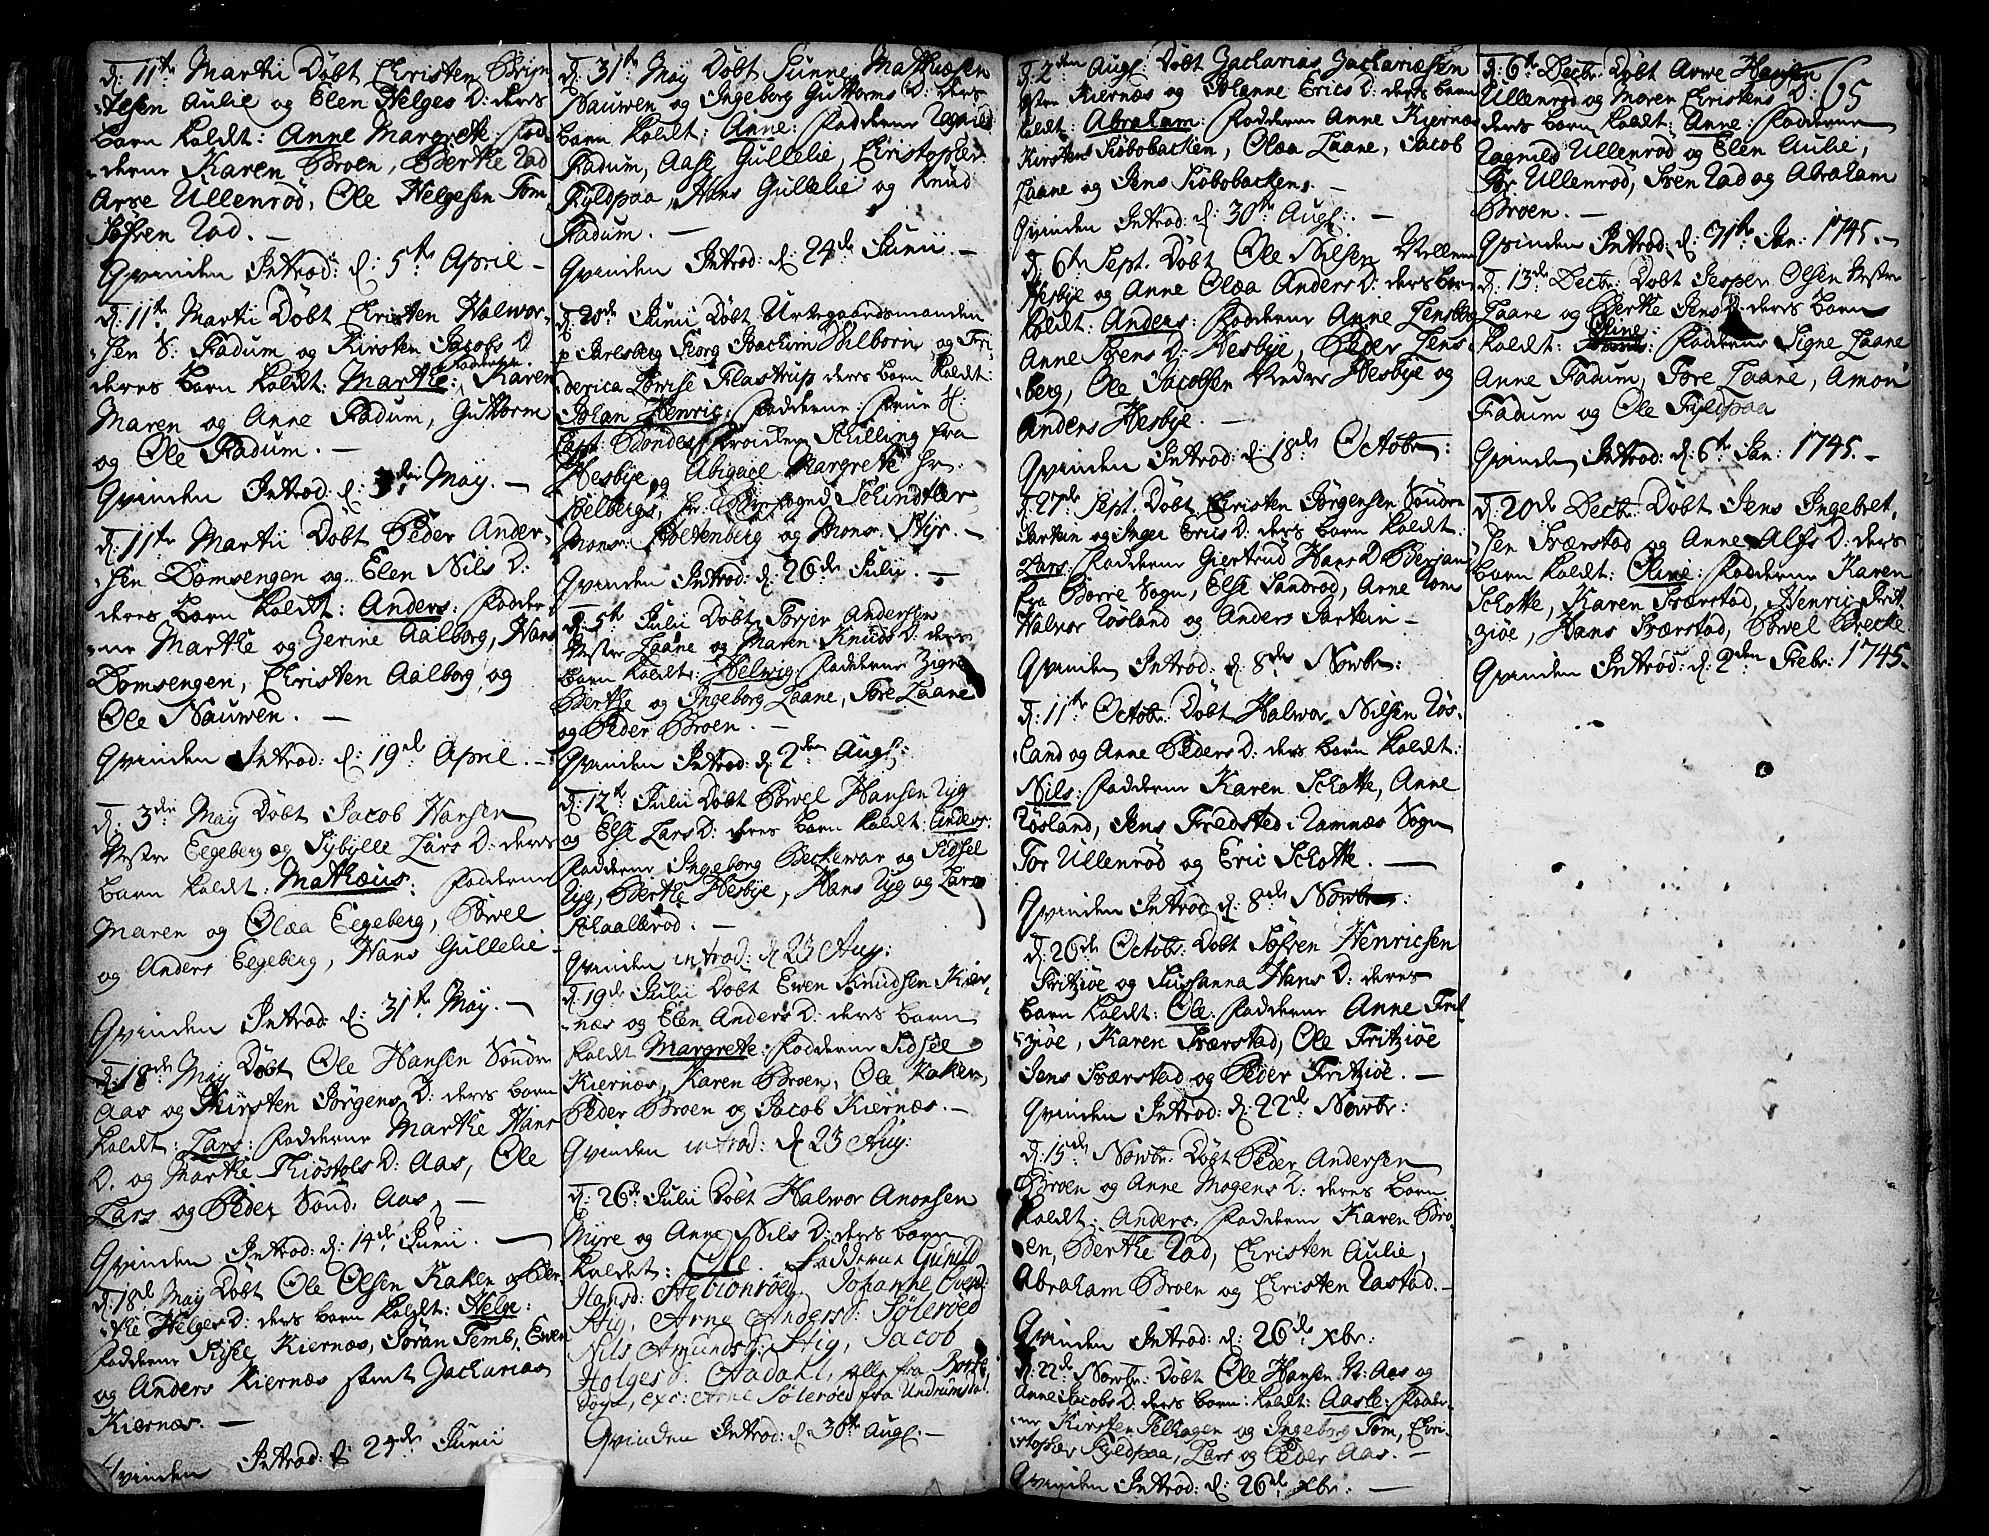 d: 11te Martii Döbt Christen Brijn-
-elsen Aulie og Elen Helges D: ders
barn kaldt: Anne Margrete: Fad-
-derne Karen Broen, Berthe Rad
Arve Ullenröd, Ole Helgesen Tom
Söfren Rad. —
Qvinden Introd: d: 5te April —
d: 11te Martii Döbt Christen Halwor-
-sen S: Fadum og Kirsten Jacobs D
deres barn kaldt: Marthe: Fadderne Karen
Maren og Anne Fadum, Guttorm
og Ole Fadum. —
Qvinden Introd: d: 3den May. —
d: 11te Martii Döbt Peder Ander-
-sen Domsengen og Elen Nils D:
deres barn kaldt: Anders: Fadder-
-ne Marthe og Gerine Aalborg, Hans
Domsengen, Christen Aalborg og
Ole Nauwen. —
Qvinden Introd: d: 19de April. —
d: 3die May Döbt Jacob Hansen
Vestre Eegeberg og Sybylle Lars D: deres
barn kaldt: Mathæus: Fadderne
Maren og Olæa Eegeberg, Powel
og Anders Eegeberg, Hans Gullelie
Qvinden Introd: d: 31te May. —
d: 18de May Döbt Ole Hansen Söndre
Aas og Kirsten Jörgens D: deres barn
kaldt: Lars: Fadderne Marthe Hans
D. og Marthe Kiöstols D: Aas, Ole
Lars og Peder Sönd. Aas. —
Qvinden Introd: d: 14de Junii. —
d: 18de May Döbt Ole Olsen Kaken og Ber-
-the Helges D: ders barn kaldt: Helge:
Fadderne Kiernæs, Söran Temb, Ewen
og Anders Kiernæs samt Zacharias
Kiernæs. —
Qvinden Introd: d: 24de Junii
d: 31te May Döbt Gunne Mathæsen
Nauwen og Ingeborg Guttorms D: ders
barn kaldt: Anne: Fadderne Ragnild
Fadum, Aase Gullelie, Christopher
Fyldpaa, Hans Gullelie og Knud
Fadum. —
Qvinden Introd: d: 24de Junii. —
d: 20de Junii Döbt Urtegaardsmanden
p Jarlsberg Georg Joachim Hilborn og Fri-
derica Lowise Flastrup deres barn kaldt:
Johan Henric: Fadderne: Frue Sl:
Capt: Bönders Froiken Schilling fra
Hesbye og Abigael Margrete hr:
Selbergs, hr: Schindtler
Mons: Holtenberg og Mons: Styr. —
Qvinden Introd: d: 26de Julii. —
d: 5te Julii Döbt Torjer Andersen
Vestre Laane og Maren Knuds D: ders
barn kaldt: Helwig: Fadderne Zigne
Berthe og Ingeborg Laane, Tore Laane
og Peder Broen. —
Qvinden Introd: d: 2den Augs:
d: 12te Julii Döbt Powel Hansen Ryg
og Else Lars D: deres barn kaldt: Anders:
Fadderne Ingeborg Beckewar og Sidsel
Ryg, Berthe Hesbye, Hans Ryg og Lars
Skaalleröd. —
Qvinden introd: d 23 Aug:
d: 19de Julii Döbt Ewen Knudsen Kier-
-næs og Elen Anders D: ders barn
kaldt Margrete: Fadderne Sidsel
Kiernæs, Karen Broen, Ole Kaken,
Peder Broen og Jacob Kiernæs. —
Qvinden introd: d 23 Aug:
d: 26de Julii Döbt Halwor Amonsen
Myre og Anne Nils D: ders barn
kaldet: Ole. Fadderne Gunild
Hansd: Johanne
Hig, Arne Andersd: Söleröed
Nils Amunds: Hig, Jacob
Holges S: Aadahl, alle fra Borre
Sogn, exc: Arne Söleröed fra Undrumsdal.
Qvinden Introd: d: 30te Augs. —
d: 2den Augs: Döbt Zacharias Zachariæsen
Vestre Kiernæs og Johanne Erics D: ders barn
kaldt: Abraham: Fadderne Anne Kiernæs
Kirsten Siöbobacken, Olæa Laane, Jacob
Laane og Jens Siöbobacken. —
Qvinden Introd: d: 30te Augs:. —
d: 6te Sept. Döbt Ole Nilsen Mellem
Hesbye og Anne Olæa Anders D: ders barn
kaldt: Anders: Fadderne Anne Lensberg
Anne Sörens D: Hesbye, Peder Lens-
-berg, Ole Jacobsen Neder Hesbye og
Anders Hesbye. —
Qvinden Introd: d: 18de Octobr:
d: 27de Sept. Döbt Christen Jörgensen Söndre
Sartuin og Inger Erics D: ders barn kaldt
Lars: Fadderne Giertrud Hans D Berjan
fra Borre Sogn, Else Sandröd, Arne Tom
Halvor Rösland og Anders Sartuin —
Qvinden Introd: d: 8de Nowbr:
d: 11te Octobr: Döbt Halwor Nilsen Rös-
-land og Anne Peders D: ders barn kaldt:
Nils: Fadderne Karen Schotte, Anne
Rösland, Jens Fredsted i Ramnæs Sogn
Tor Ullenröd og Eric Schotte. —
Qvinden Introd: d: 8de Nowbr:
d: 26de Octobr: Döbt Söfren Henricsen
Fritziöe og Susanna Hans D: deres
barn kaldt: Ole: Fadderne Anne Frit-
-ziöe, Karen Sværstad, Ole Fritziöe
Jens Sværstad og Peder Fritziöe. —
Qvinden Introd: d: 22de Nowbr:
d: 15de Nowbr: Döbt Peder Andersen
Broen og Anne Mogens D: deres barn
kaldt: Anders. Fadderne Karen Bro-
en, Berthe Rad, Christen Aulie,
Abraham Broen og Christen Rastad. —
Qvinden Introd: d: 26de xbr:
d: 22de Nowbr: Döbt Ole Hansen N: Aas og
Anne Jacobs D: ders barn: kaldt: Aasle: Fadder-
-ne Kirsten Selhagen og Ingeborg Tom, Chri-
-stopher Fyldpaa, Lars og Peder Aas. —
Qvinden Introd: d: 26de xbr: —
65
d: 6te Decbr: Döbt Arwe Hansen
Ullenröd og Maren Christens D:
deres barn kaldt: Anne: Fadderne
Ragnild Ullenröd og Elen Aulie,
Tor Ullenröd, Sven Rad og Abraham
Broen. —
Qvinden Introd: d: 31te Jan: 1745. —
d: 13de Decbr: Döbt Jesper Olsen Vestre
Laane og Berthe Jens D: ders barn
kaldt: Oline: Fadderne Signe Laane
Anne Fadum, Tore Laane, Amon
Fadum og Ole Fyldpaa
Qvinden Introd: d: 6te Jan: 1745. —
d: 20de Decbr: Döbt Jens Ingebret-
-sen Sværstad og Anne Alfs D: ders
barn kaldt: Oline: Fadderne Karen
Schotte, Karen Sværstad, Henric Frit-
-ziöe, Hans Sværstad, Powel Brecke
Qvinden Introd: d: 2den Febr: 1745. —